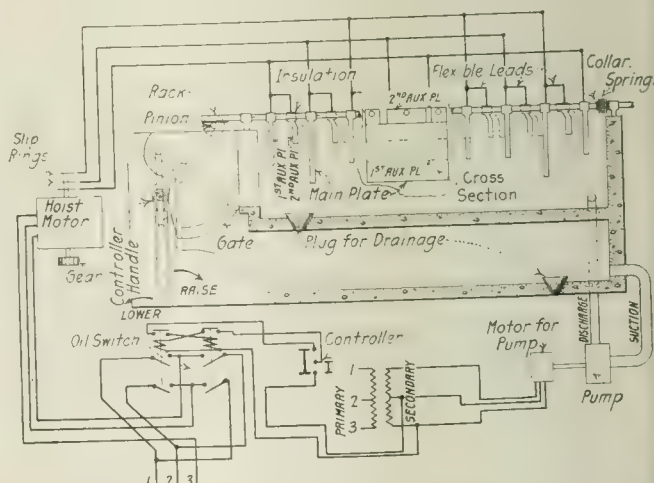 Insulation
Flexible Leads
Collar
Springs
Rack
Pinion
2ND AUX PL
Slip
Rings
1ST AUX Pl
2ND AUX Pl
1ST AUX PL
Main Plate
Cross
Section
Hoist
Motor
Gate
Plug for Drainage
Gear
Controller
Handle
RAISE
LOWER
Oil Switch
Controller
Motor for
Pump
DISCHARGE
SUCTION
Pump
1
2
3
PRIMARY
SECONDARY
1 2 3